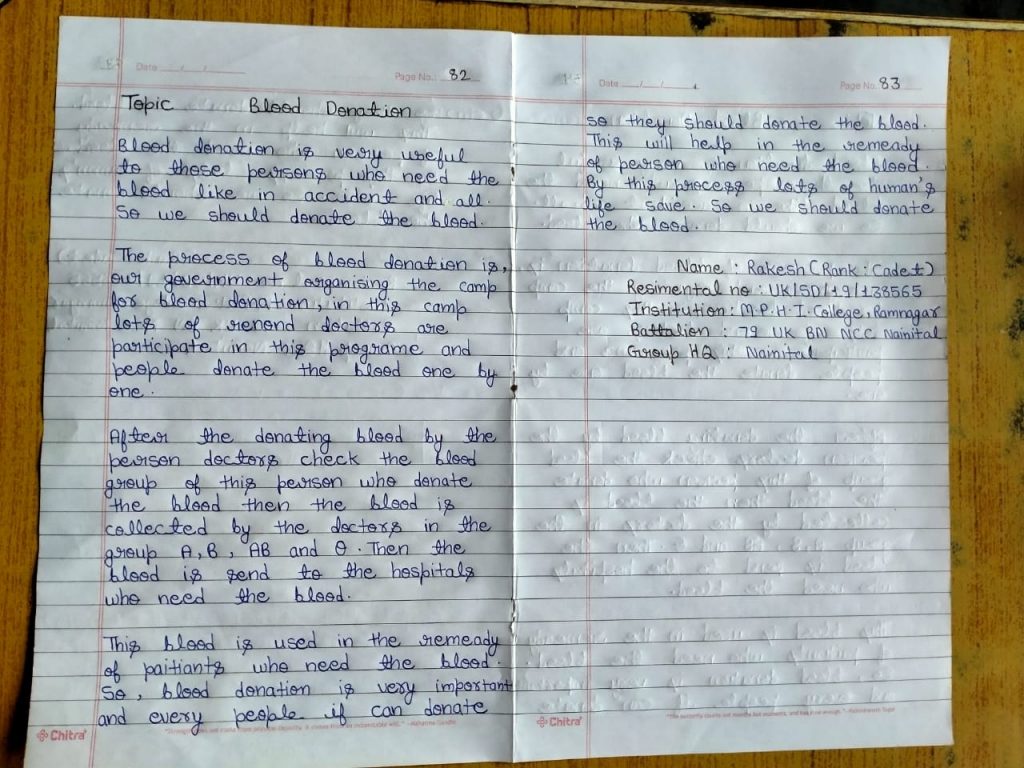 Date
Page No. 82
Topic Blood Donation
Blood donation is very useful
to those persons who need the
blood like in accident and all.
So we should donate the blood.
The process of blood donation is,
our government organising the camp
for blood donation, in this camp
lots of renond doctors are
participate in this programe and
people donate the blood one by
one.
After the donating blood by the
person doctors check the blood
group of this person who donate
the blood then the blood is
collected by the doctors in the
group A, B, AB and O. Then the
blood is send to the hospitals
who need the blood.
This blood is used in the remeady
of paitiants who need the blood.
So, blood donation is very important
and every people if can donate
Chitra
Date
Page No. 83
so they should donate the blood.
This will help in the remeady
of person who need the blood.
By this process lots of human's
life save. So we should donate
the blood.
Name : Rakesh (Rank : Cadet)
Resimental no : UK/SD/19/138565
Institution : M.P.H.I. College, Ramnagar
Battalion : 79 UK BN NCC Nainital
Group HQ : Nainital
Chitra